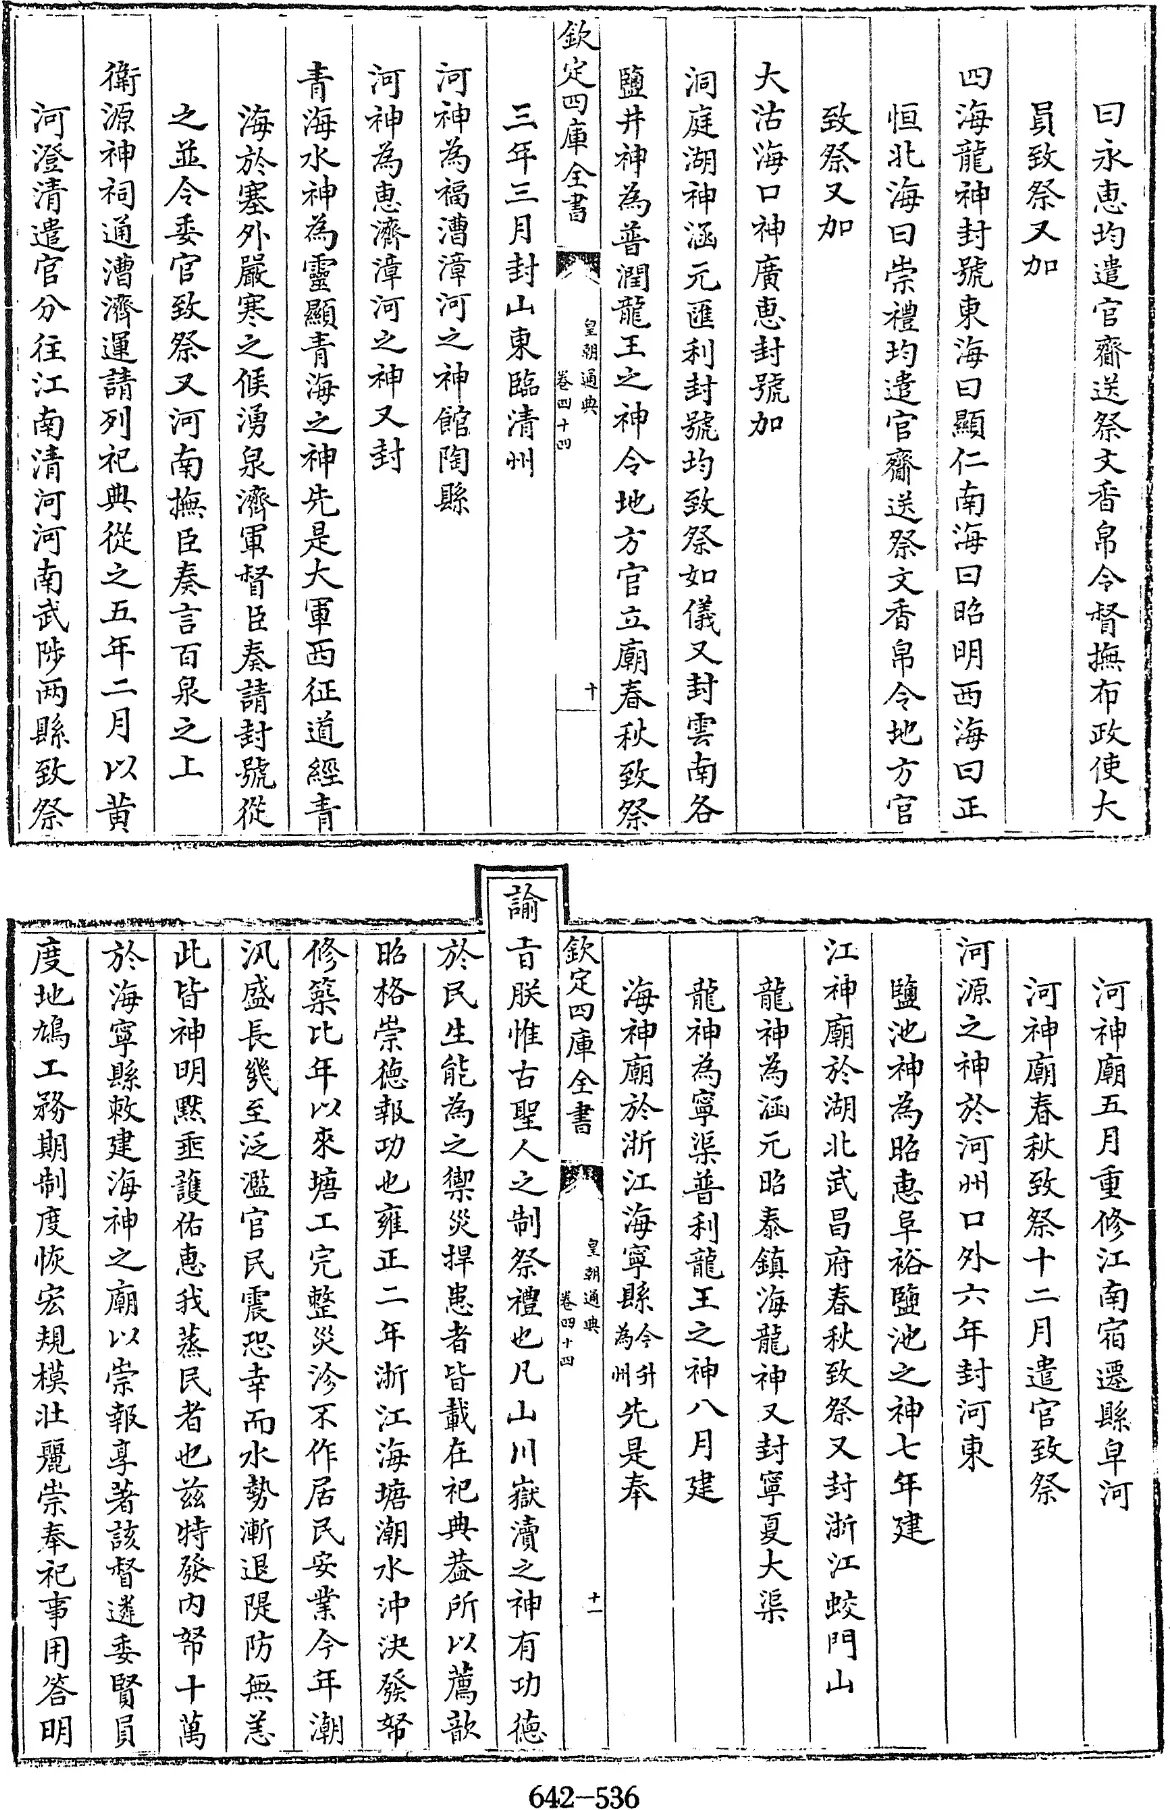 曰永恵均遣官齎送祭文香帛令督撫布政使大
員致祭又加
四海龍神封號東海曰顯仁南海曰昭明西海曰正
恒北海曰崇禮均遣官齎送祭文香帛令地方官
致祭又加
大沽海口神廣恵封號加
洞庭湖神涵元匯利封號均致祭如儀又封雲南各
鹽井神為普潤龍王之神令地方官立廟春秋致祭
欽定四庫全書
皇朝通典
卷四十四
十
三年三月封山東臨清州
河神為福漕漳河之神館陶縣
河神為惠濟漳河之神又封
青海水神為靈顯青海之神先是大軍西征道經青
海於塞外嚴寒之候湧泉濟軍督臣奏請封號從
之並令委官致祭又河南撫臣奏言百泉之上
衛源神祠通漕濟運請列祀典從之五年二月以黃
河澄清遣官分往江南清河河南武陟两縣致祭
河神廟五月重修江南宿遷縣皁河
河神廟春秋致祭十二月遣官致祭
河源之神於河州口外六年封河東
鹽池神為昭惠阜裕鹽池之神七年建
江神廟於湖北武昌府春秋致祭又封浙江蛟門山
龍神為涵元昭泰鎮海龍神又封寧夏大渠
龍神為寧渠普利龍王之神八月建
海神廟於浙江海寧縣今升為州先是奉
欽定四庫全書
皇朝通典
卷四十四
十一
諭旨朕惟古聖人之制祭禮也凡山川嶽瀆之神有功徳
於民生能為之禦災捍患者皆載在祀典葢所以薦歆
昭格崇徳報功也雍正二年浙江海塘潮水沖決發帑
修築比年以來塘工完整災沴不作居民安業今年潮
汛盛長幾至泛濫官民震恐幸而水勢漸退隄防無恙
此皆神明黙垂護佑惠我蒸民者也兹特發内帑十萬
於海寧縣敕建海神之廟以崇報享著該督遴委賢員
度地鳩工務期制度恢宏規模壯麗崇奉祀事用答明
642-536